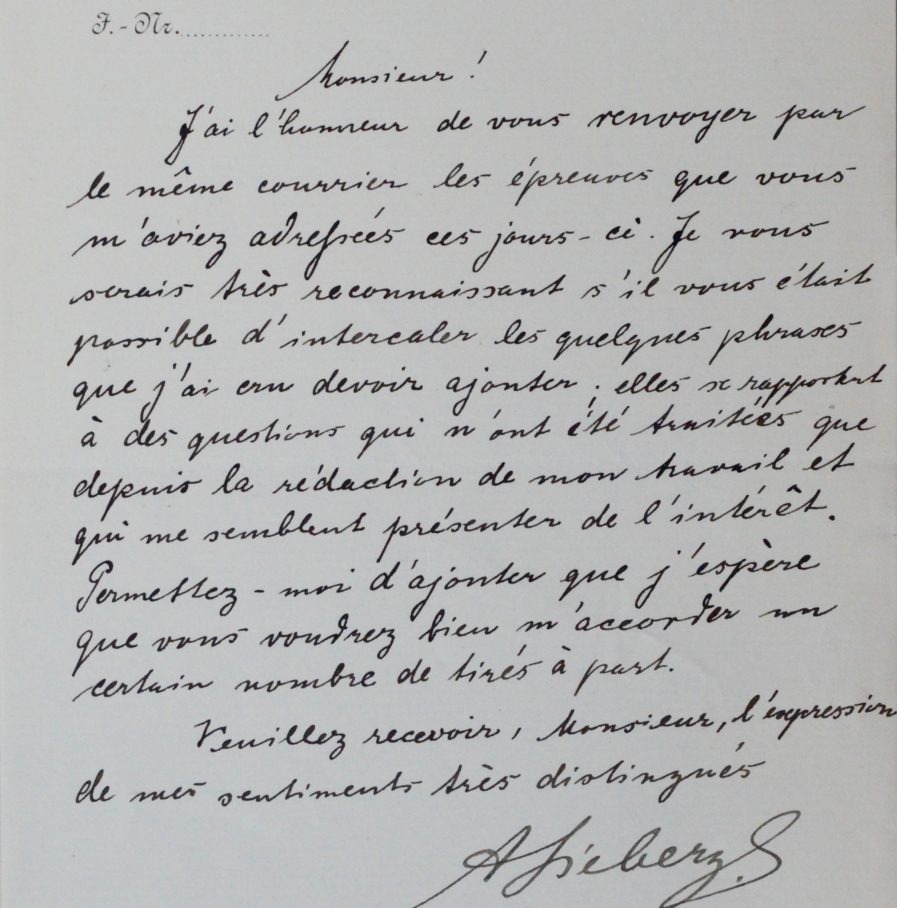 J.-Nr.............
Monsieur!
J'ai l'honneur de vous renvoyer par
le même courrier les épreuves que vous
m'aviez adressées ces jours-ci. Je vous
serais très reconnaissant s'il vous était
possible d'intercaler les quelques phrases
que j'ai cru devoir ajouter; elles se rapportent
à des questions qui n'ont été traitées que
depuis la rédaction de mon travail et
qui me semblent présenter de l'intérêt.
Permettez-moi d'ajouter que j'espère
que vous voudrez bien m'accorder un
certain nombre de tirés à part.
Veuillez recevoir, Monsieur, l'expression
de mes sentiments très distingués
A Sieberg.